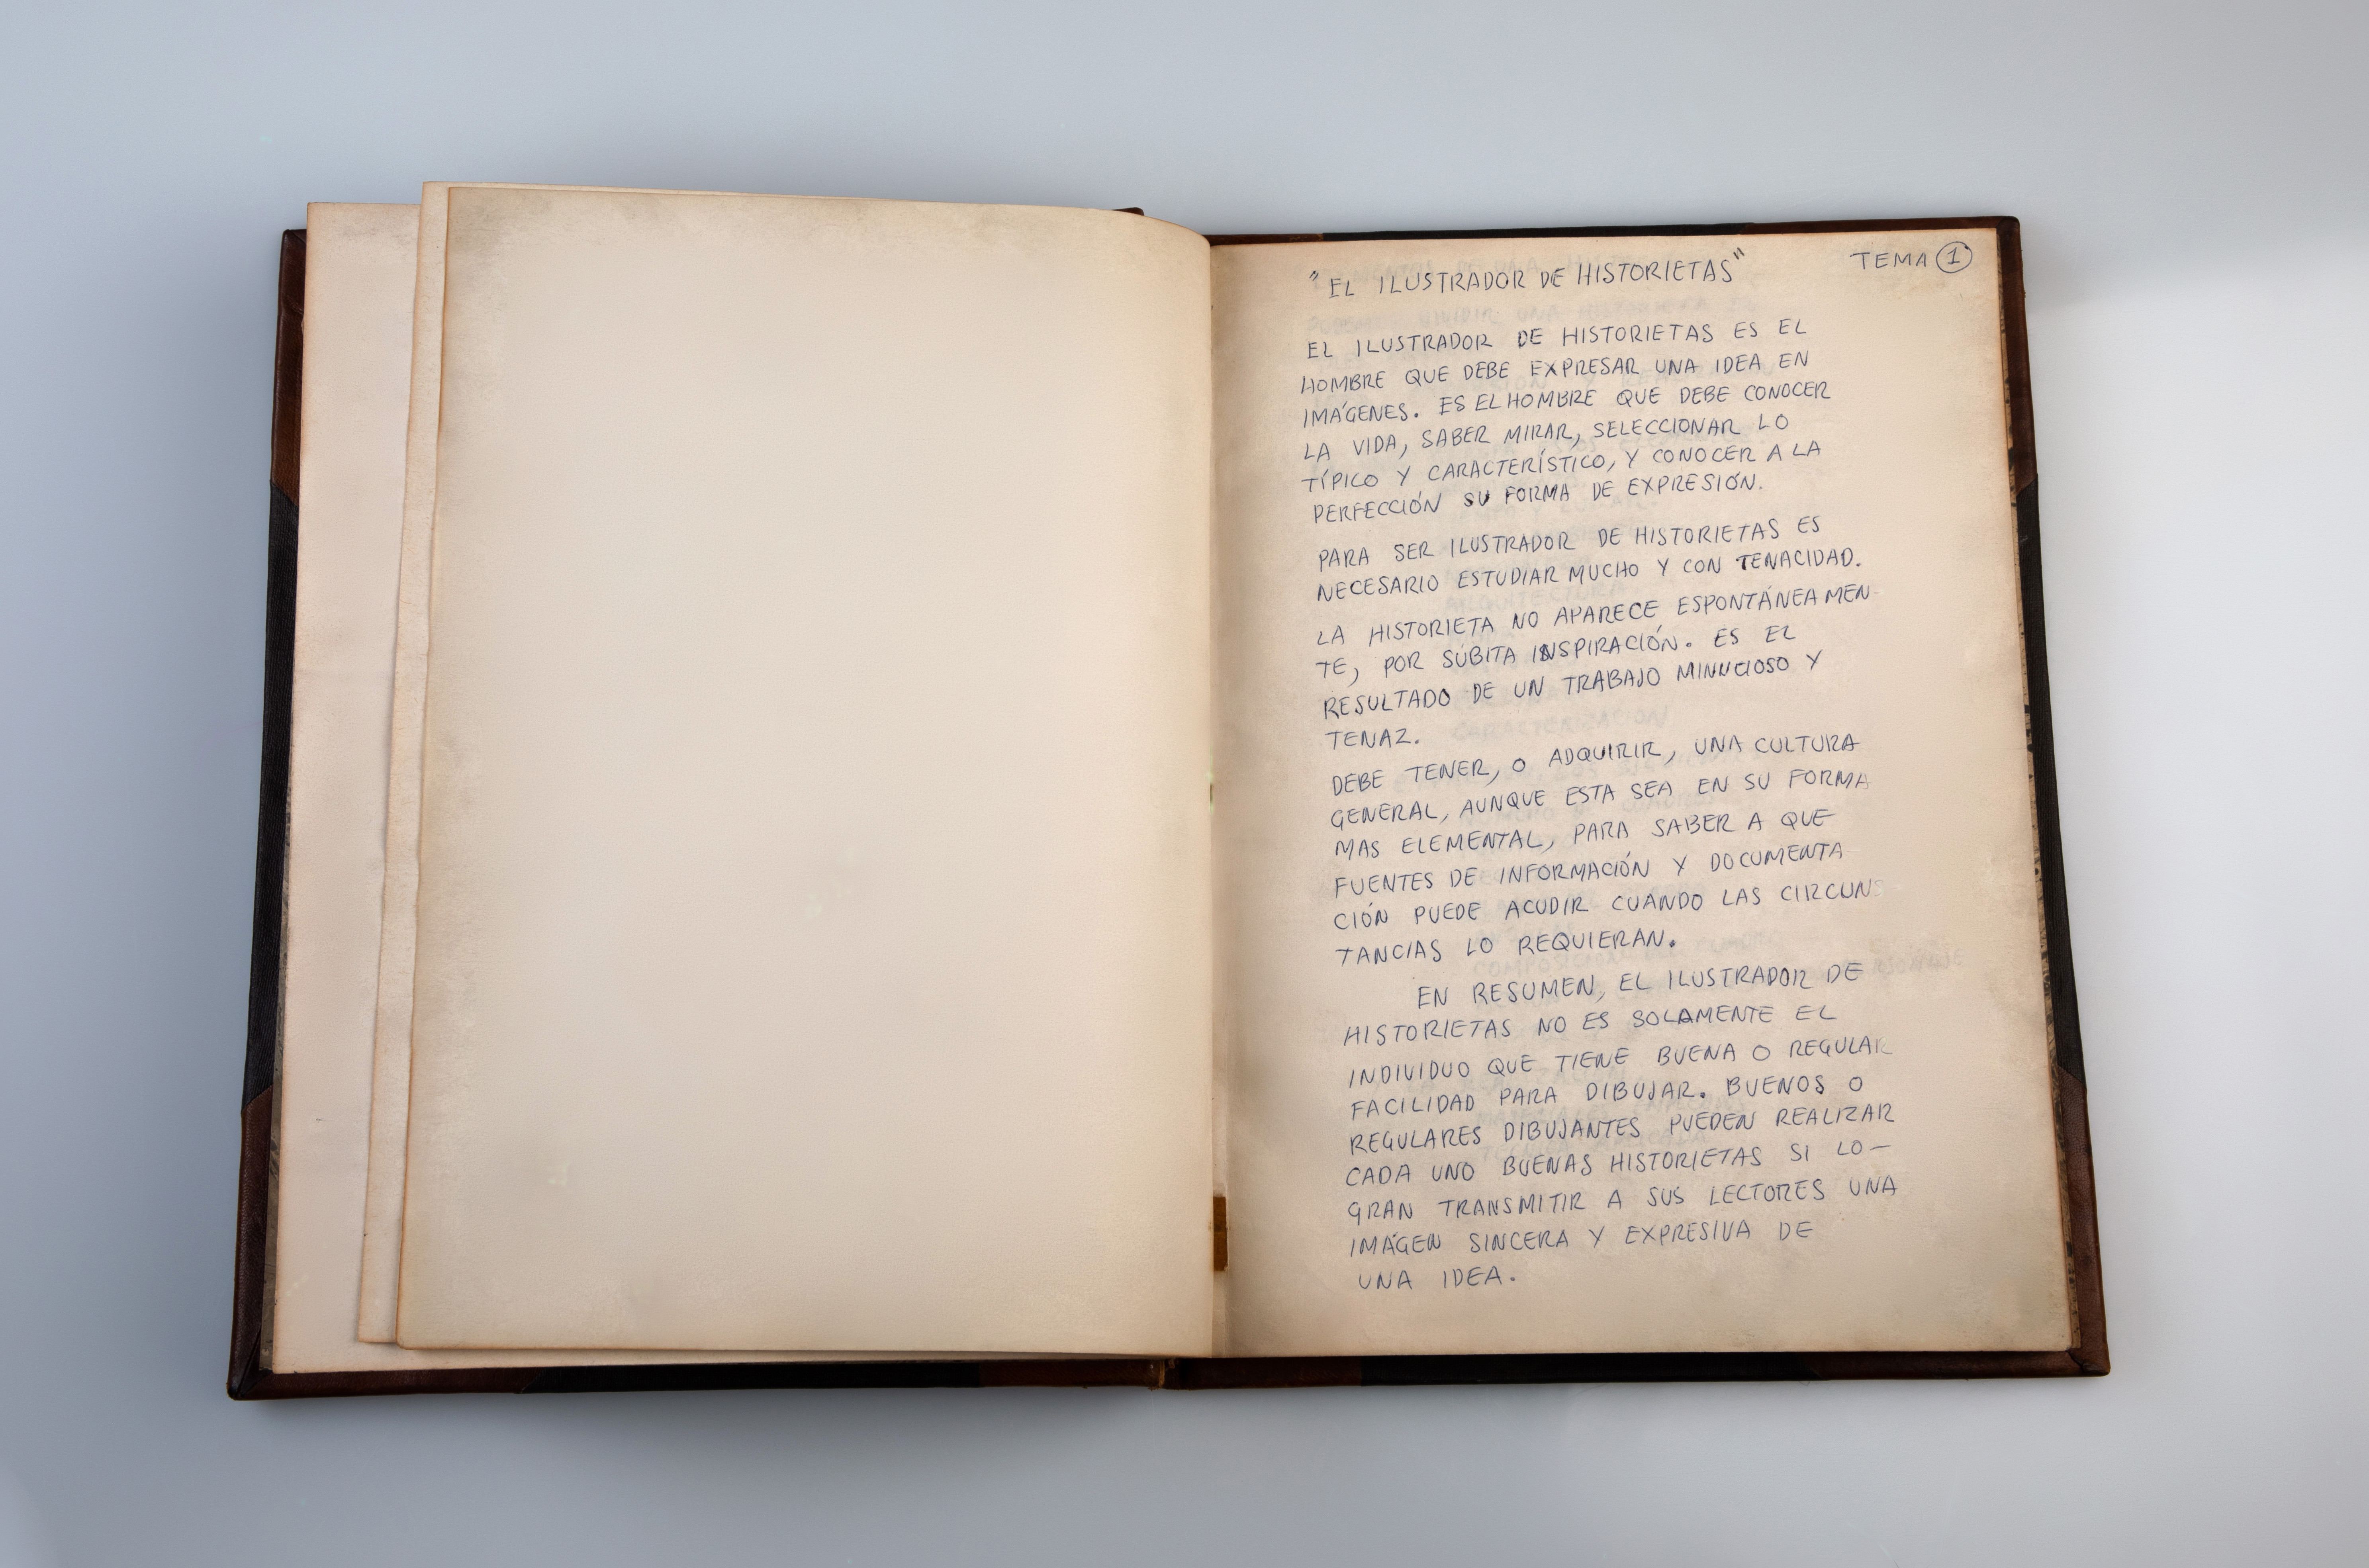 "EL ILUSTRADOR DE HISTORIETAS" TEMA 1
EL ILUSTRADOR DE HISTORIETAS ES EL
HOMBRE QUE DEBE EXPRESAR UNA IDEA EN
IMÁGENES. ES EL HOMBRE QUE DEBE CONOCER
LA VIDA, SABER MIRAR, SELECCIONAR LO
TÍPICO Y CARACTERÍSTICO, Y CONOCER A LA
PERFECCIÓN SU FORMA DE EXPRESIÓN.
PARA SER ILUSTRADOR DE HISTORIETAS ES
NECESARIO ESTUDIAR MUCHO Y CON TENACIDAD.
LA HISTORIETA NO APARECE ESPONTÁNEAMEN-
TE, POR SÚBITA INSPIRACIÓN. ES EL
RESULTADO DE UN TRABAJO MINUCIOSO Y
TENAZ.
DEBE TENER, O ADQUIRIR, UNA CULTURA
GENERAL, AUNQUE ESTA SEA EN SU FORMA
MAS ELEMENTAL, PARA SABER A QUE
FUENTES DE INFORMACIÓN Y DOCUMENTA
CIÓN PUEDE ACUDIR CUANDO LAS CIRCUNS
TANCIAS LO REQUIERAN.
EN RESUMEN, EL ILUSTRADOR DE
HISTORIETAS NO ES SOLAMENTE EL
INDIVIDUO QUE TIENE BUENA O REGULAR
FACILIDAD PARA DIBUJAR. BUENOS O
REGULARES DIBUJANTES PUEDEN REALIZAR
CADA UNO BUENAS HISTORIETAS SI LO-
GRAN TRANSMITIR A SUS LECTORES UNA
IMÁGEN SINCERA Y EXPRESIVA DE
UNA IDEA.